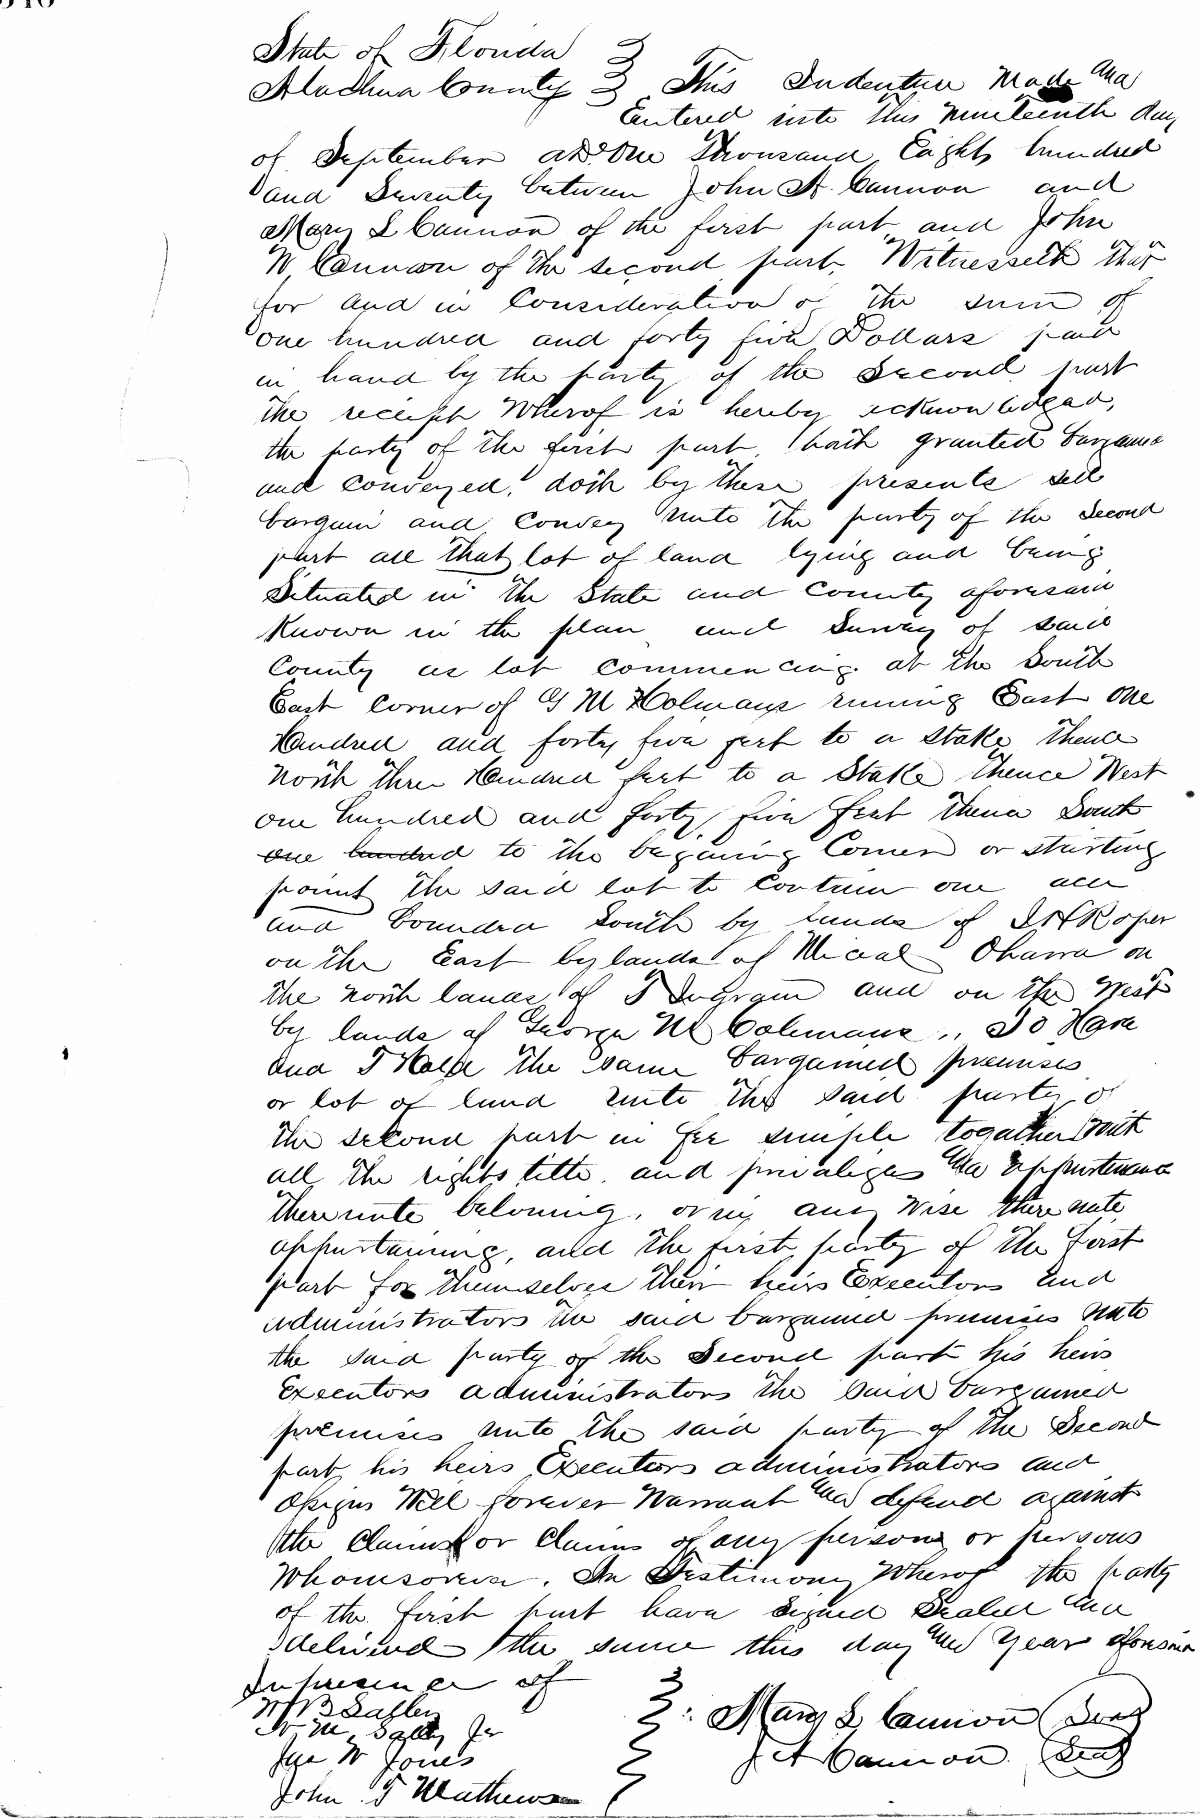 State of Florida
Alachua County } This Indenture Made and
Entered into this nineteenth day
of September AD One Thousand Eight hundred
and Seventy between John A. Cannon and
Mary L Cannon of the first part and John
W, Cannon of the second part, Witnesseth that
for and in Consideration of the sum of
one hundred and forty five Dollars paid
in hand by the party of the Second part
the receipt Wherof is hereby acknowledged,
the party of the first part, hath granted bargained
and conveyed, doth by these presents sell
bargain and convey unto the party of the second
part all that lot of land lying and being
Situated in the State and County aforesaid
Known in the plan and Survey of said
County as lot commencing at the South
East corner of G M Holmans running East one
Hundred and forty five feet to a stake thence
North three Hundred feet to a Stake thence West
one hundred and forty five feet thence South
one hundred to the begining Corner or starting
point the said lot to contain one acre
and bounded South by lands of Roper
on the East by lands of Micael Oharra on
the north lands of T Ingram and on the West
by lands of George M Colemans,. To Have
and T Hold the same bargained premises
or lot of land unto the said party of
the second part in fee simple together with
all the rights title and privaliges and appurtenance
thereunto beloning, or in any wise there unto
appurtaining, and the first party of the first
part for themselves their heirs Executors and
administrators the said bargained premises unto
the said party of the Second part his heirs
Executors administrators the said bargained
premises unto the said party of the Second
part his heirs Executors administrators and
assigns Will forever Warrant and defend against
the Claims or Claims of any person or persons
Whomsoever. In Testimony Wherof the party
of the first part have signed Sealed and
delivered the same this day and Year aforesaid
In presence of
W B Salley
W. M. Salley Jr } Mary L Cannon (Seal)
W Jones J A Cannon. (Seal)
John T Mathews